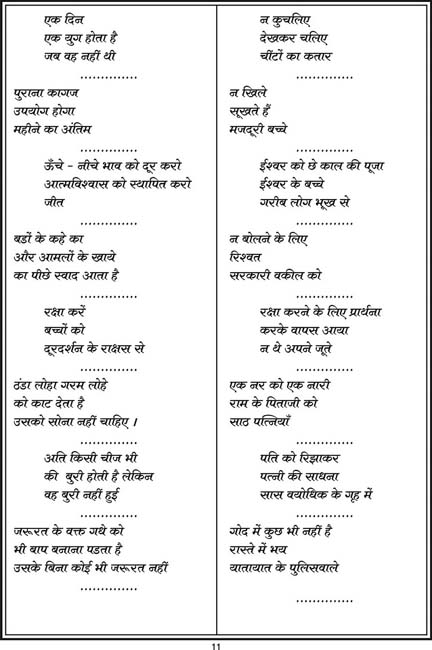 एक दिन
एक युग होता है
जब वह नहीं थी
..............
पुराना कागज
उपयोग होगा
महीने का अंतिम
..............
ऊँचे - नीचे भाव को दूर करो
आत्मविश्वास को स्थापित करो
जीत
..............
बडों के कहे का
और आमलों के खाये
का पीछे स्वाद आता है
..............
रक्षा करें
बच्चों को
दूरदर्शन के राक्षस से
..............
ठंडा लोहा गरम लोहे
को काट देता है
उसको सोना नहीं चाहिए ।
..............
अति किसी चीज भी
की बुरी होती है लेकिन
वह बुरी नहीं हुई
..............
जरूरत के वक्त गधे को
भी बाप बनाना पडता है
उसके बिना कोई भी जरूरत नहीं
..............
न कुचलिए
देखकर चलिए
चींटों का कतार
..............
न खिले
सूखते हैं
मजदूरी बच्चे
..............
ईश्वर को छे काल की पूजा
ईश्वर के बच्चे
गरीब लोग भूख से
..............
न बोलने के लिए
रिश्वत
सरकारी वकील को
..............
रक्षा करने के लिए प्रार्थना
करके वापस आया
न थे अपने जूते
..............
एक नर को एक नारी
राम के पिताजी को
साठ पत्नियाँ
..............
पति को रिझाकर
पत्नी की साधना
सास वयोधिक के गृह में
..............
गोद में कुछ भी नहीं है
रास्ते में भय
यातायात के पुलिसवाले
..............
11